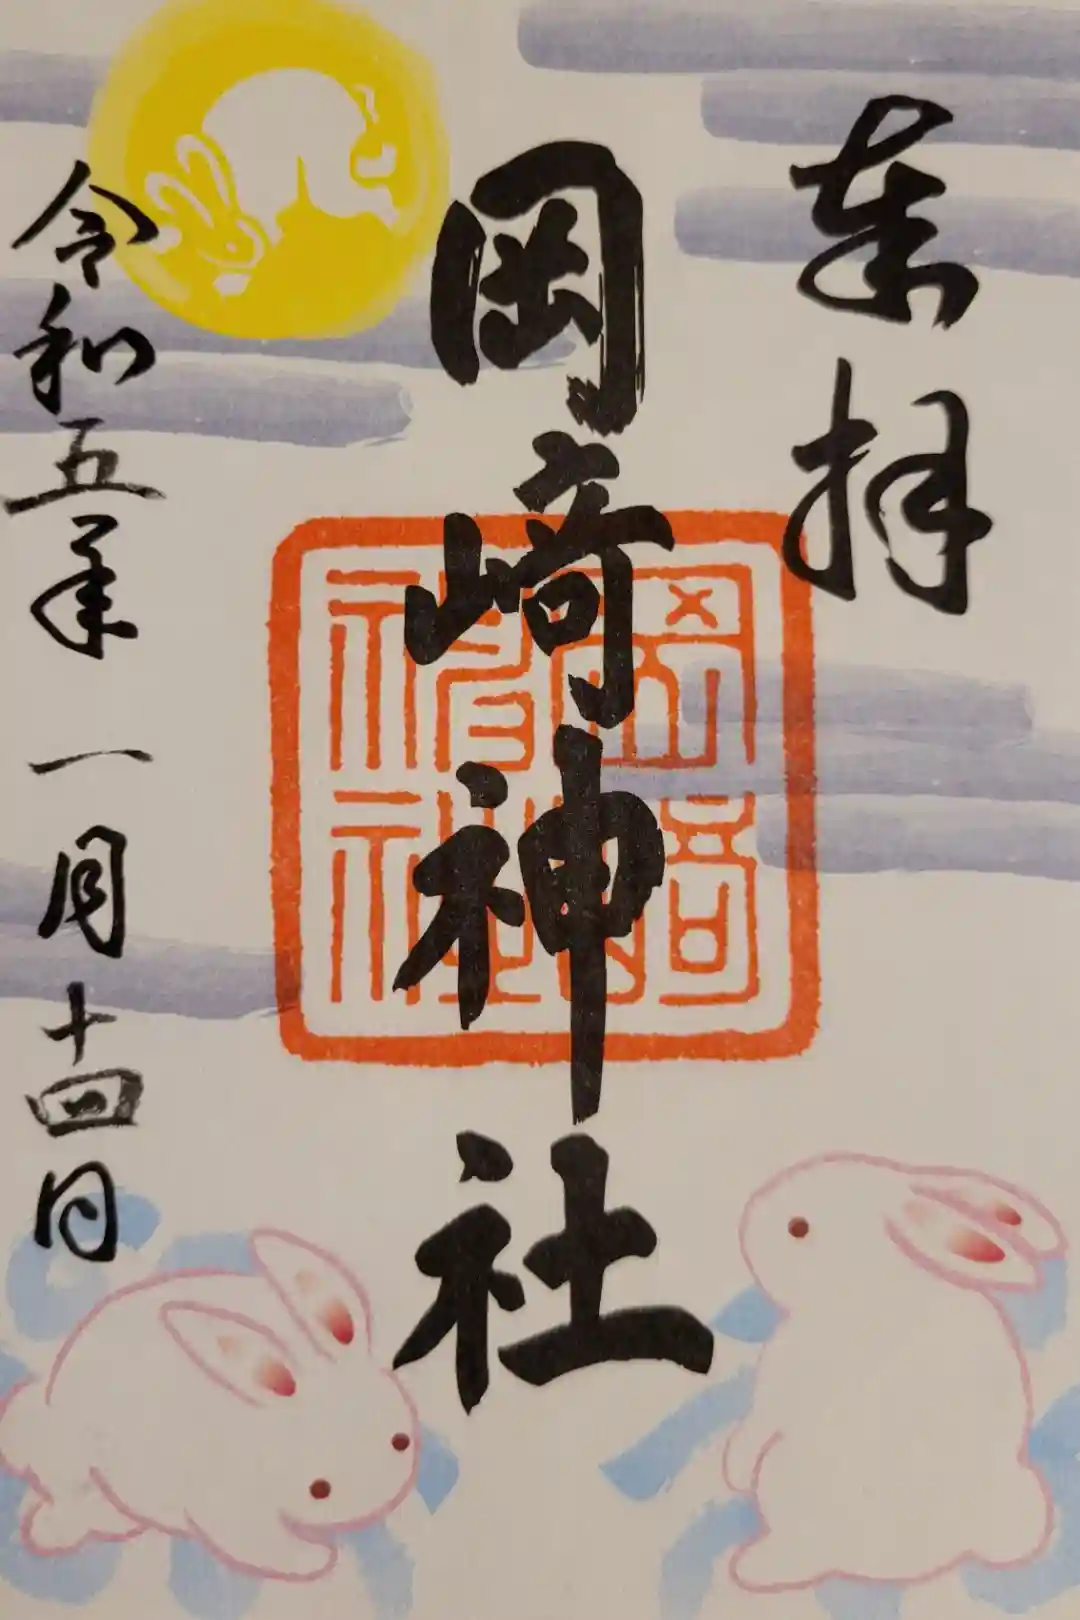 奉拝
岡崎神社
岡崎神社
令和五年一月十四日